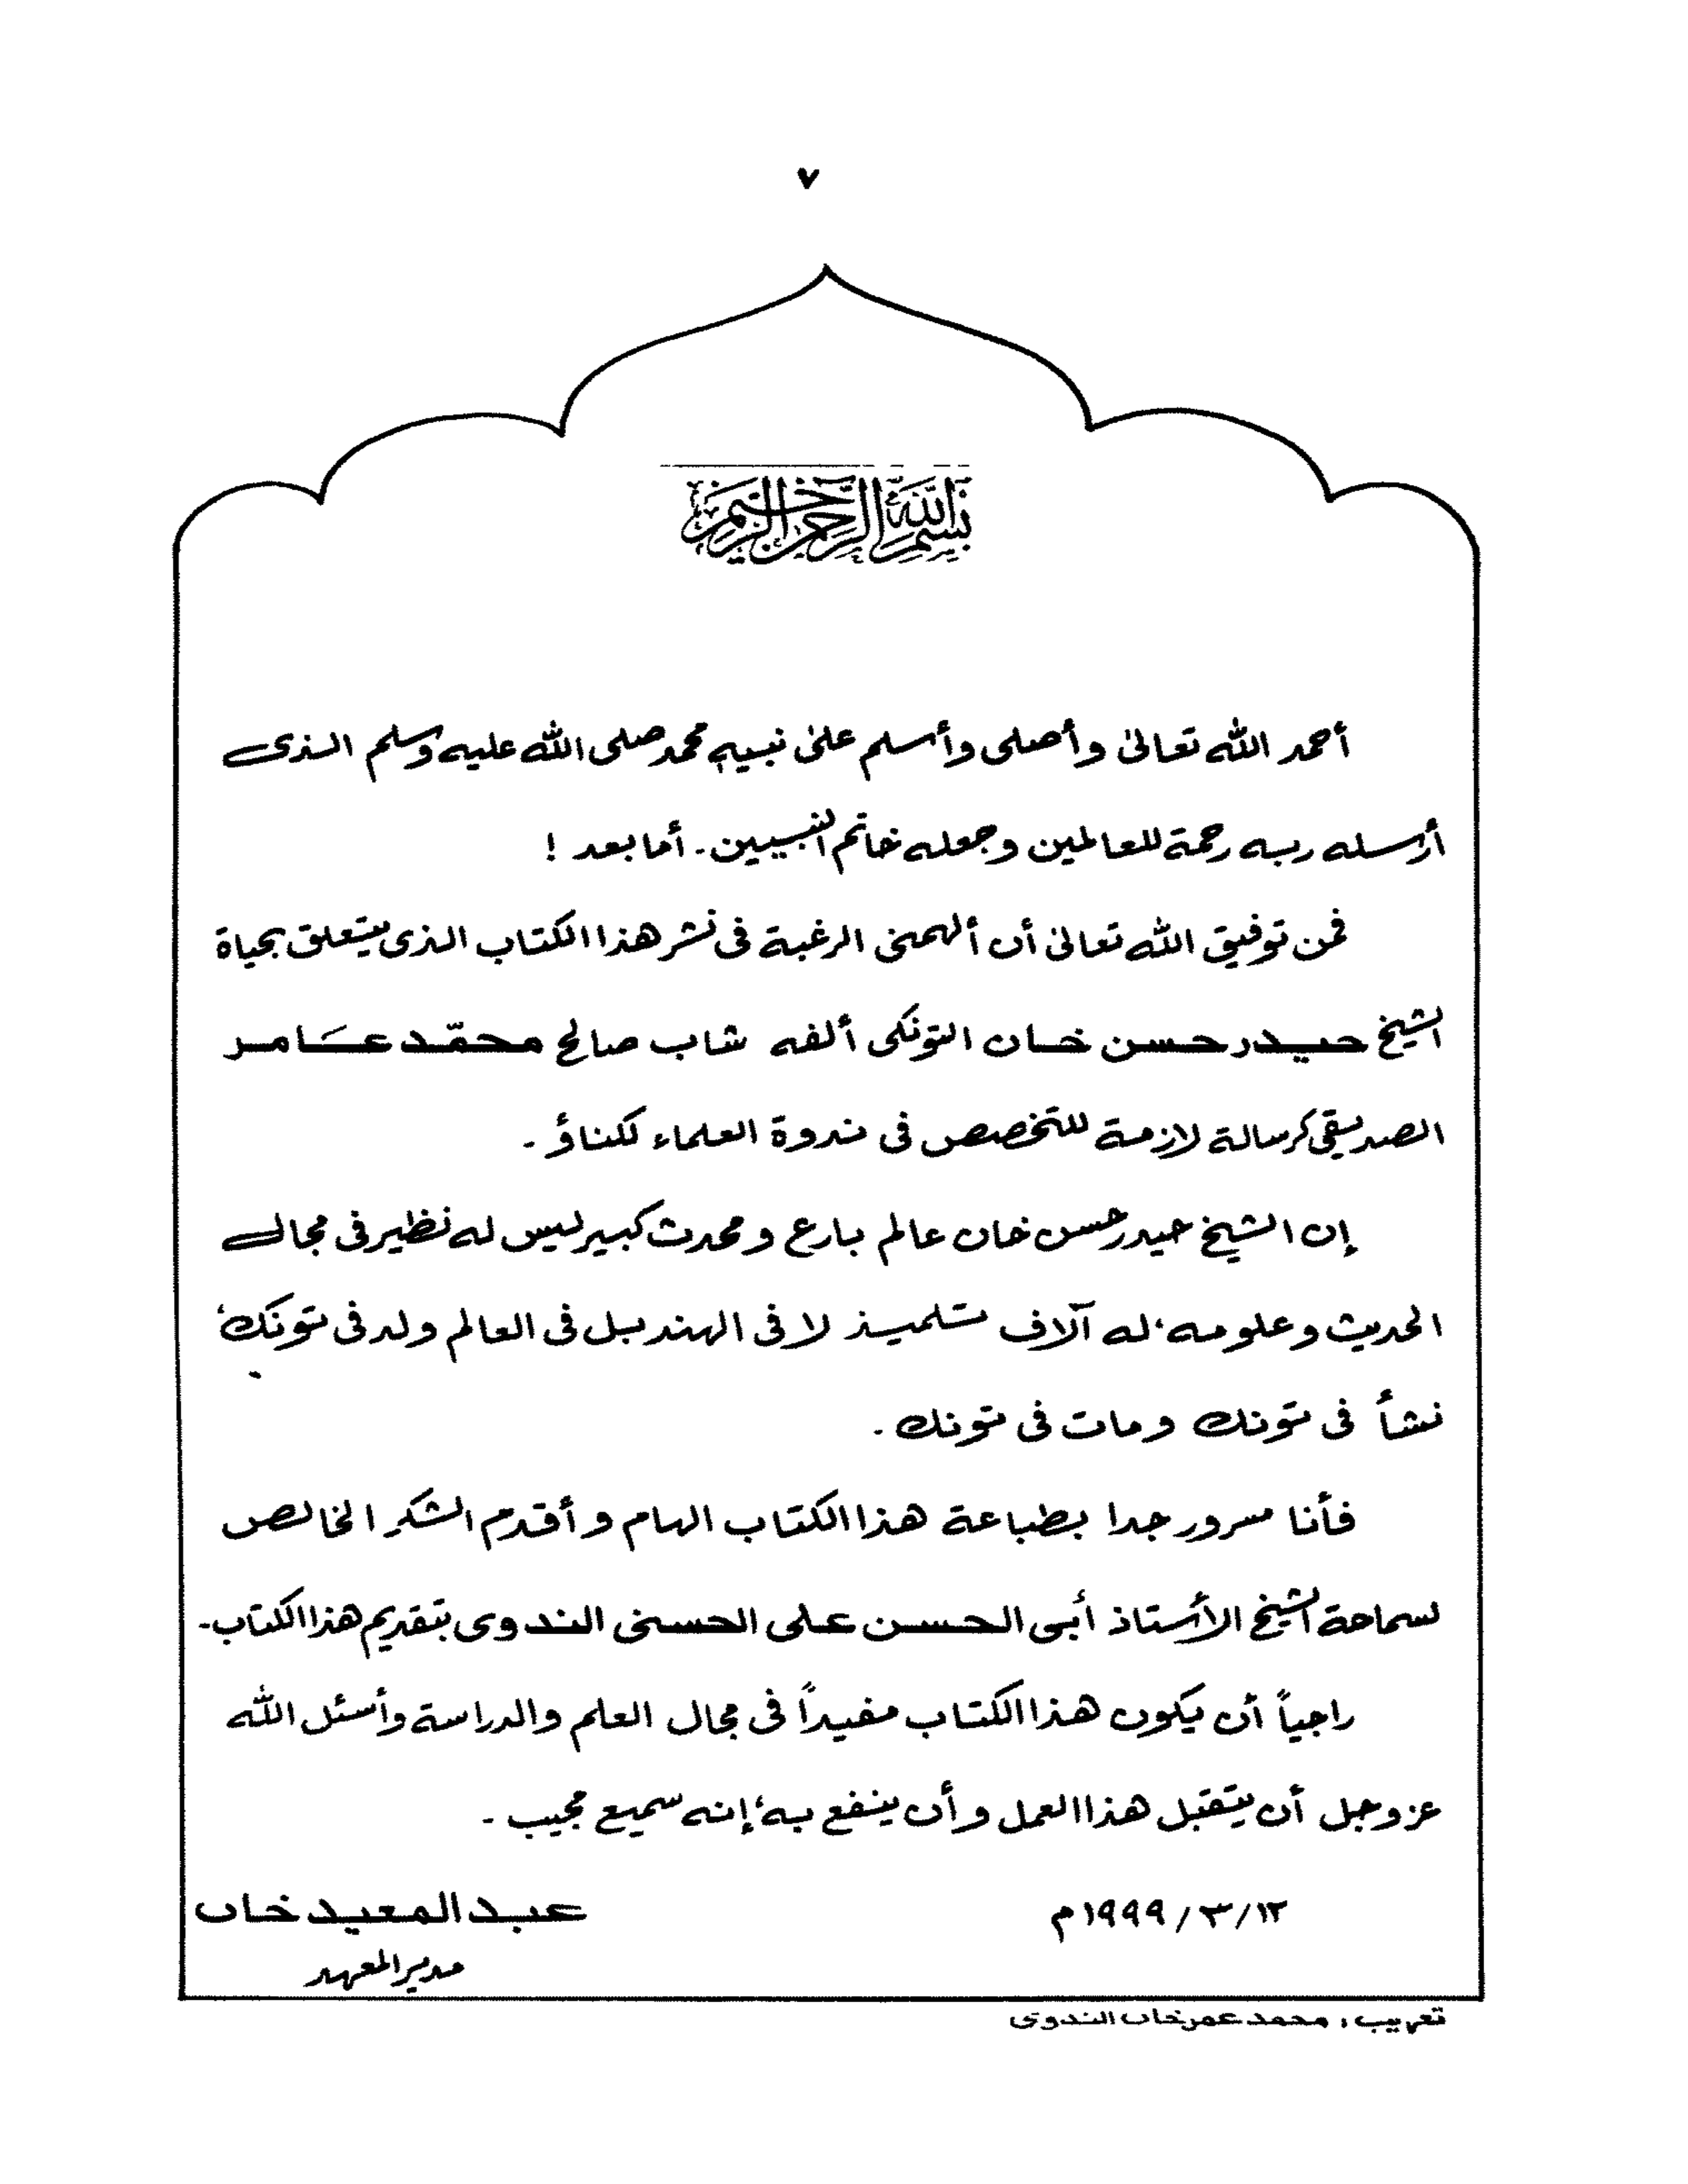 ٧
بسم الله الرحمن الرحيم
أحمد الله تعالىٰ وأصلى وأسلم علىٰ نبيه محمد صلى الله عليه وسلم الذى
أرسله ربه رحمة للعالمين وجعله خاتم النبيين ـ أما بعد !
فمن توفيق الله تعالىٰ أن ألهمنى الرغبة فى نشر هذا الكتاب الذى يتعلق بحياة
الشيخ حيدر حسن خان التونكى ألفه شاب صالح محمّد عَامر
الصديقى كرسالة لازمة للتخصص فى ندوة العلماء لكناؤ ـ
إن الشيخ حيدر حسن خان عالم بارع ومحدث كبير ليس له نظير فى مجال
الحديث وعلومه، له آلاف تلميذ لا فى الهند بل فى العالم ولد فى تونك،
نشأ فى تونك ومات فى تونك ـ
فأنا مسرور جدا بطباعة هذا الكتاب الهام وأقدم الشكر الخالص
لسماحة الشيخ الأستاذ أبى الحسن على الحسنى الندوى بتقديم هذا الكتاب ـ
راجياً أن يكون هذا الكتاب مفيداً فى مجال العلم والدراسة وأسئل الله
عز وجل أن يتقبل هذا العمل وأن ينفع به، إنه سميع مجيب ـ
١٢/٣/١٩٩٩م
عبد المعيد خان
مدير المعهد
تعريب : محمد عمر خان الندوى